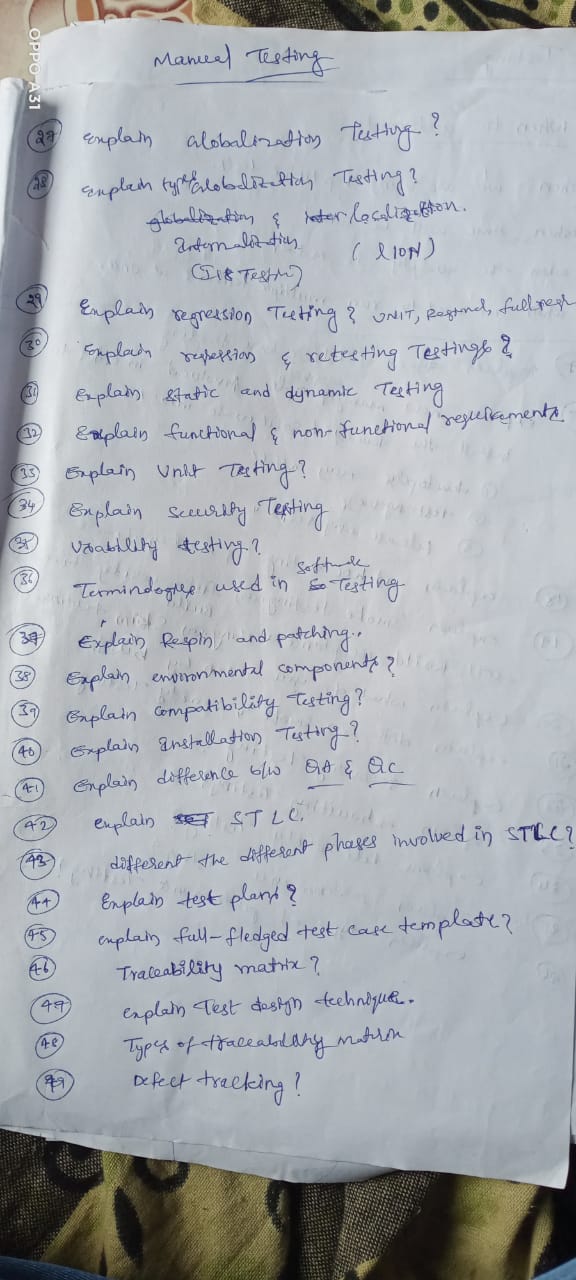 OPPO A31
Manual Testing
27 Explain Globalization Testing?
28 Explain types Globalization Testing?
globalization & localization.
Internalization (L10N)
(I18 Testing)
29 Explain regression Testing? UNIT, Regional, full
30 Explain regression & retesting Testings?
31 Explain static and dynamic Testing
32 Explain functional & non-functional requirements
33 Explain Unit Testing?
34 Explain Security Testing
35 Usability testing?
36 Terminologies used in Software Testing
37 Explain Respin and patching.
38 Explain environmental components?
39 Explain Compatibility Testing?
40 Explain Installation Testing?
41 Explain difference b/w QA & QC
42 explain STLC.
43 different the different phases involved in STLC?
44 Explain test plans?
45 explain full-fledged test case template?
46 Traceability matrix?
47 explain Test design technique.
48 Types of traceability matrix
49 Defect tracking?